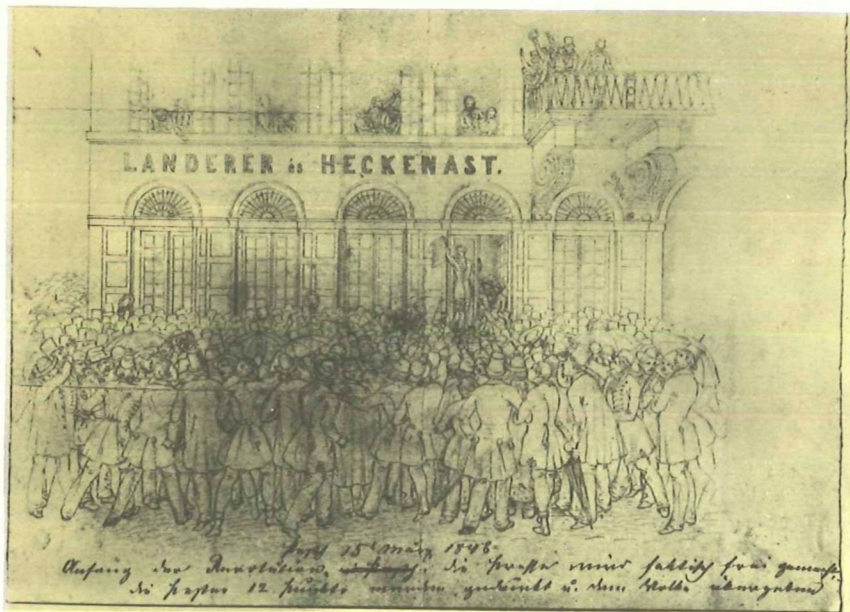 LANDERER és HECKENAST.
Pest 15t März 1848
Anfang der Revolution, die Presse wird faktisch frei gemacht,
die Pester 12 Punkte werden gedruckt u. dem Volke übergeben